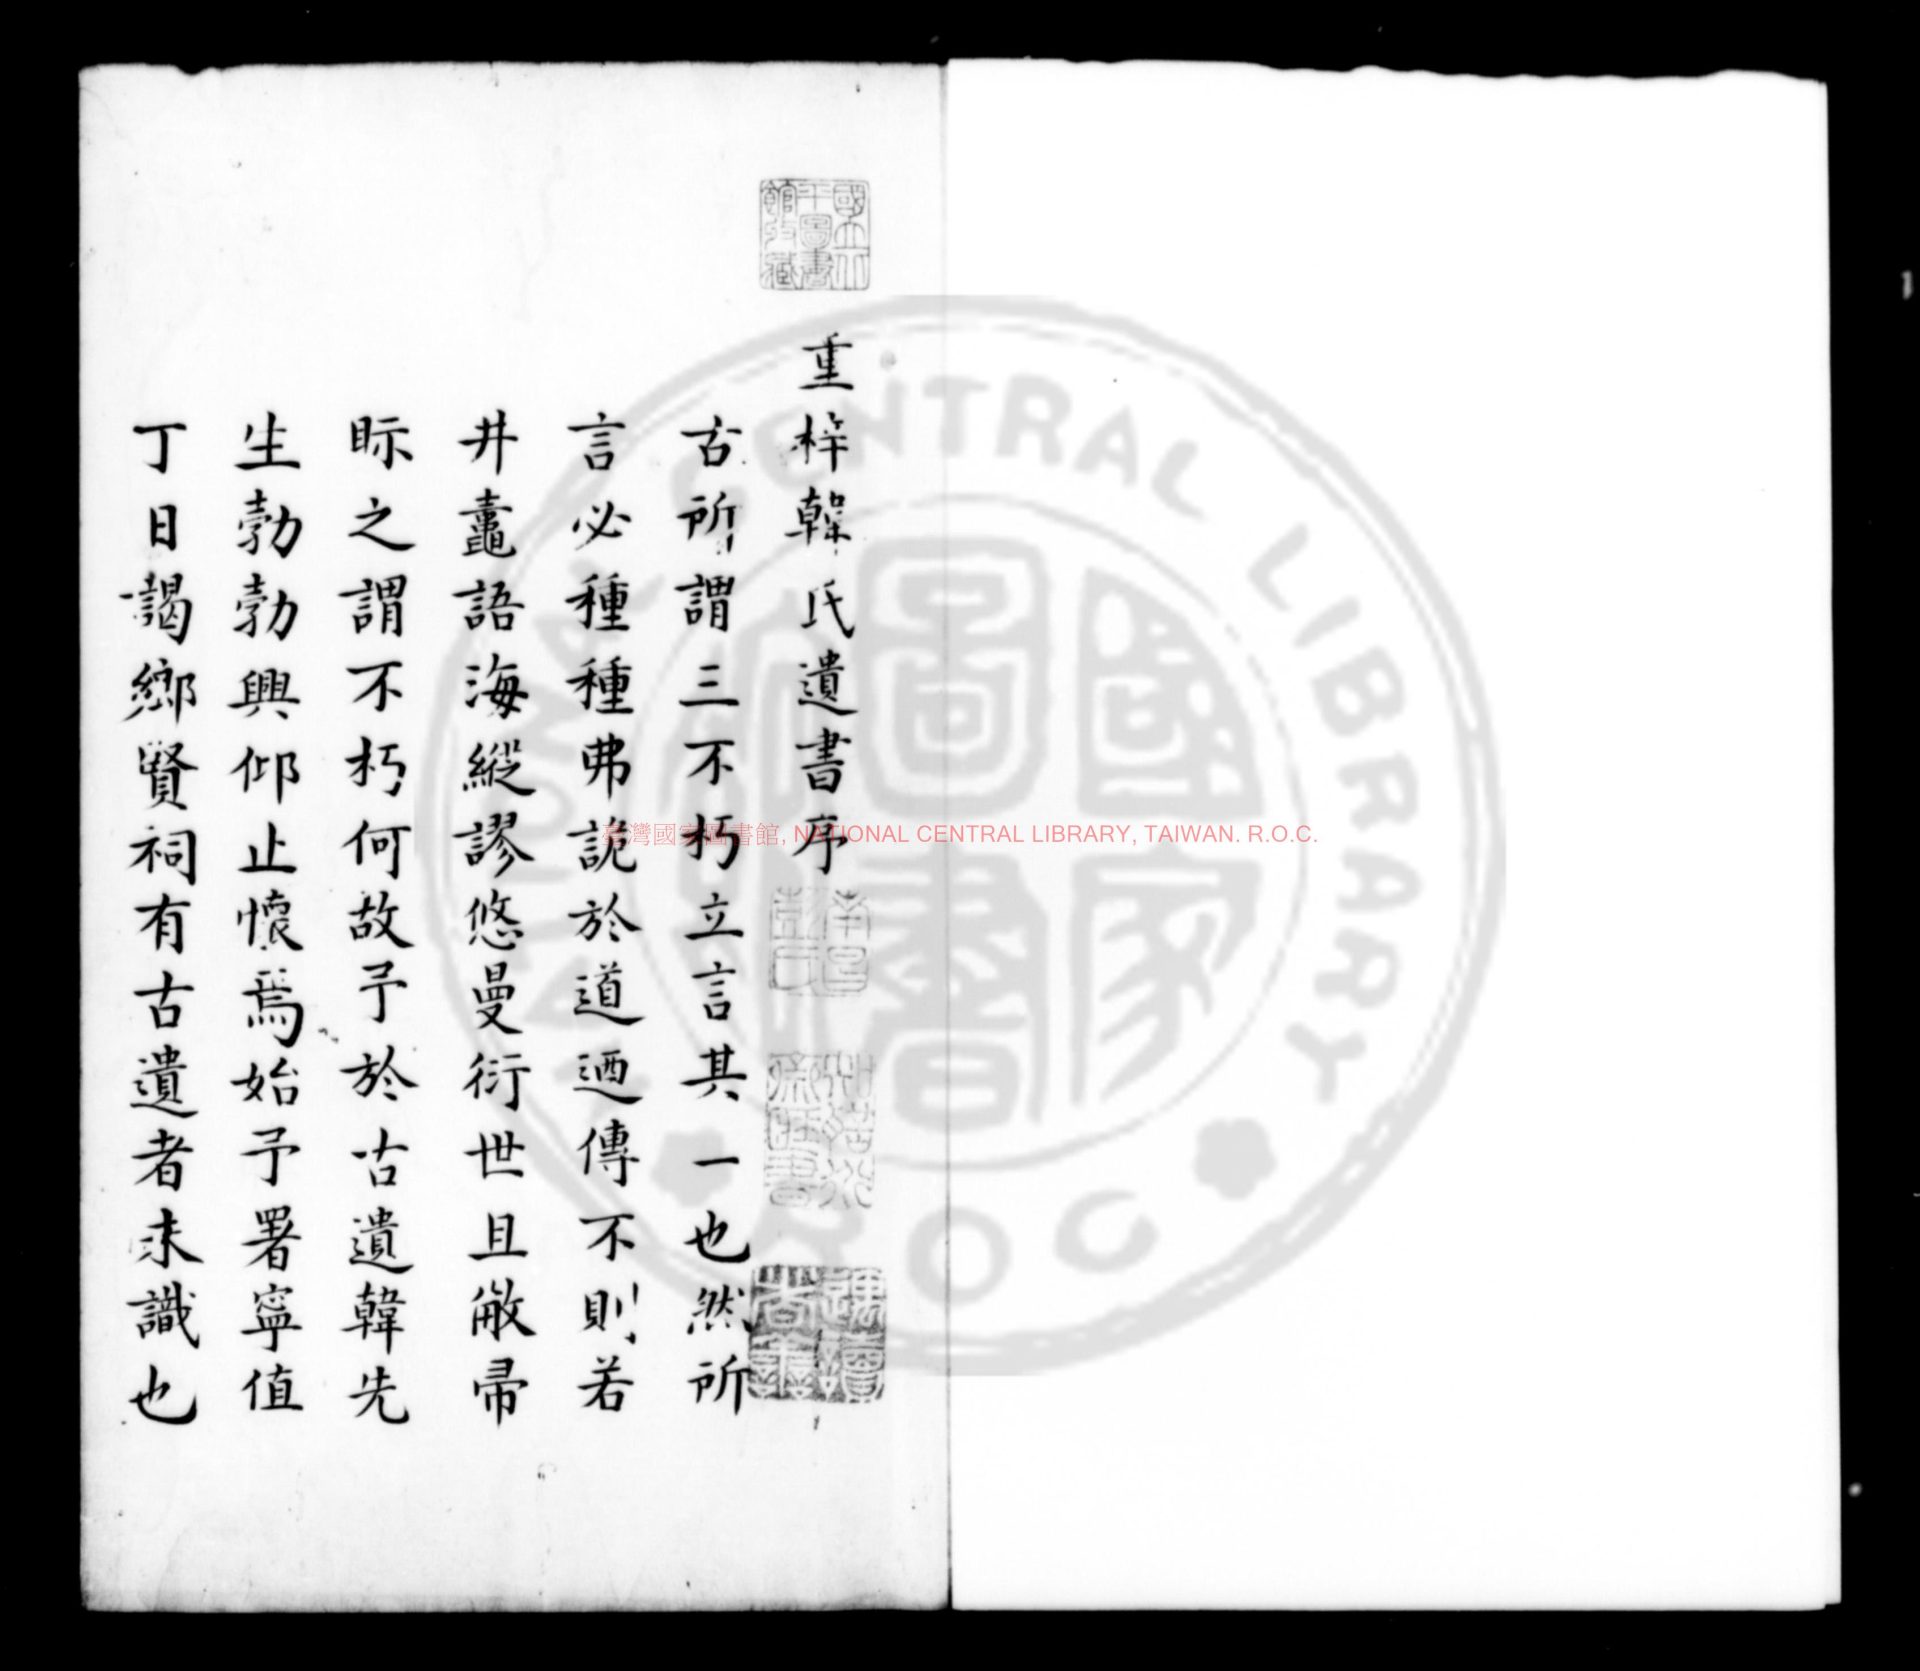 重梓韓氏遺書序
古所謂三不朽立言其一也然所
言必種種弗詭於道迺傳不則若
井鼃語海縱謬悠曼衍世且敝帚
眎之謂不朽何故予於古遺韓先
生勃勃興仰止懷焉始予署寧值
丁日謁鄉賢祠有古遺者未識也
國立北平圖書館收藏
南昌彭氏
知聖道齋藏書
遇讀者善
臺灣國家圖書館, NATIONAL CENTRAL LIBRARY, TAIWAN. R.O.C.
NATIONAL CENTRAL LIBRARY
R.O.C.
國家圖書